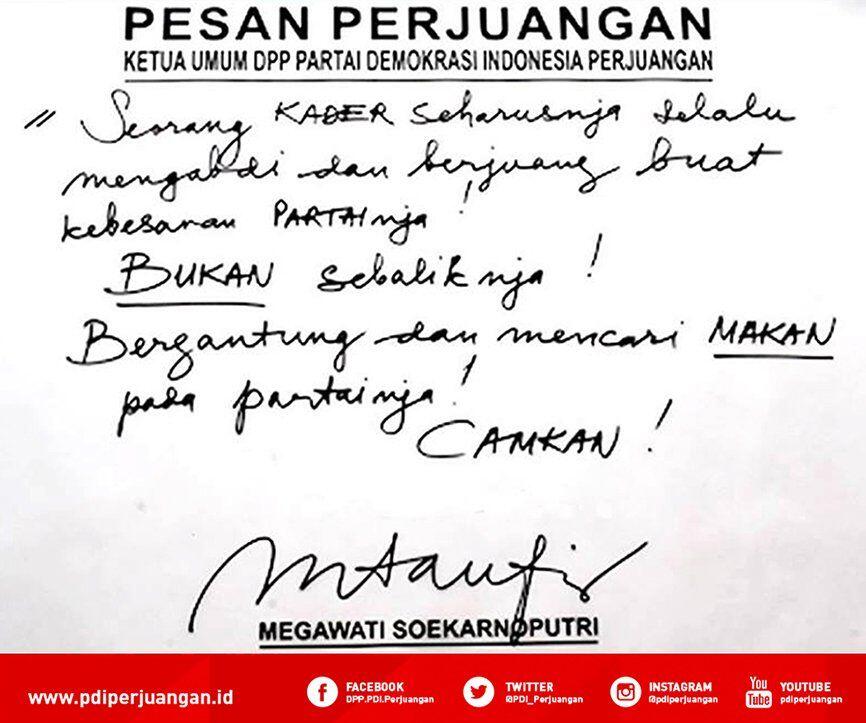 PESAN PERJUANGAN
KETUA UMUM DPP PARTAI DEMOKRASI INDONESIA PERJUANGAN
" Seorang KADER seharusnja selalu
mengabdi dan berjuang buat
kebesaran PARTAInja !
BUKAN sebaliknja !
Bergantung dan mencari MAKAN
pada partainja !
CAMKAN !
MEGAWATI SOEKARNOPUTRI
www.pdiperjuangan.id
FACEBOOK
DPP.PDI.Perjuangan
TWITTER
@PDI_Perjuangan
INSTAGRAM
@pdiperjuangan
You Tube
YOUTUBE
pdiperjuangan